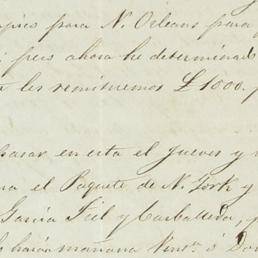 para N. Orleans para
pero ahora he determinado
les remitiremos £ 1000.
pasar en esta el Jueves y
el Paquete de N. York y
Garcia Fiel y Carballeda,
mañana